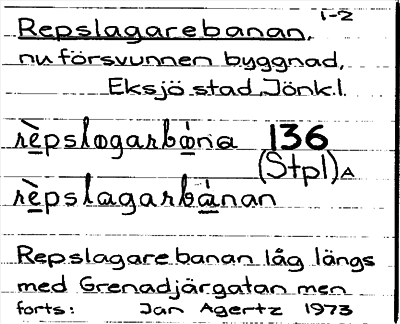 1-2
Repslagarebanan,
nu försvunnen byggnad,
Eksjö stad, Jönk.l.
rèpslagarbána 136
(Stpl)A
rèpslagarbánan
Repslagarebanan låg längs
med Grenadjärgatan men
forts: Jan Agertz 1973